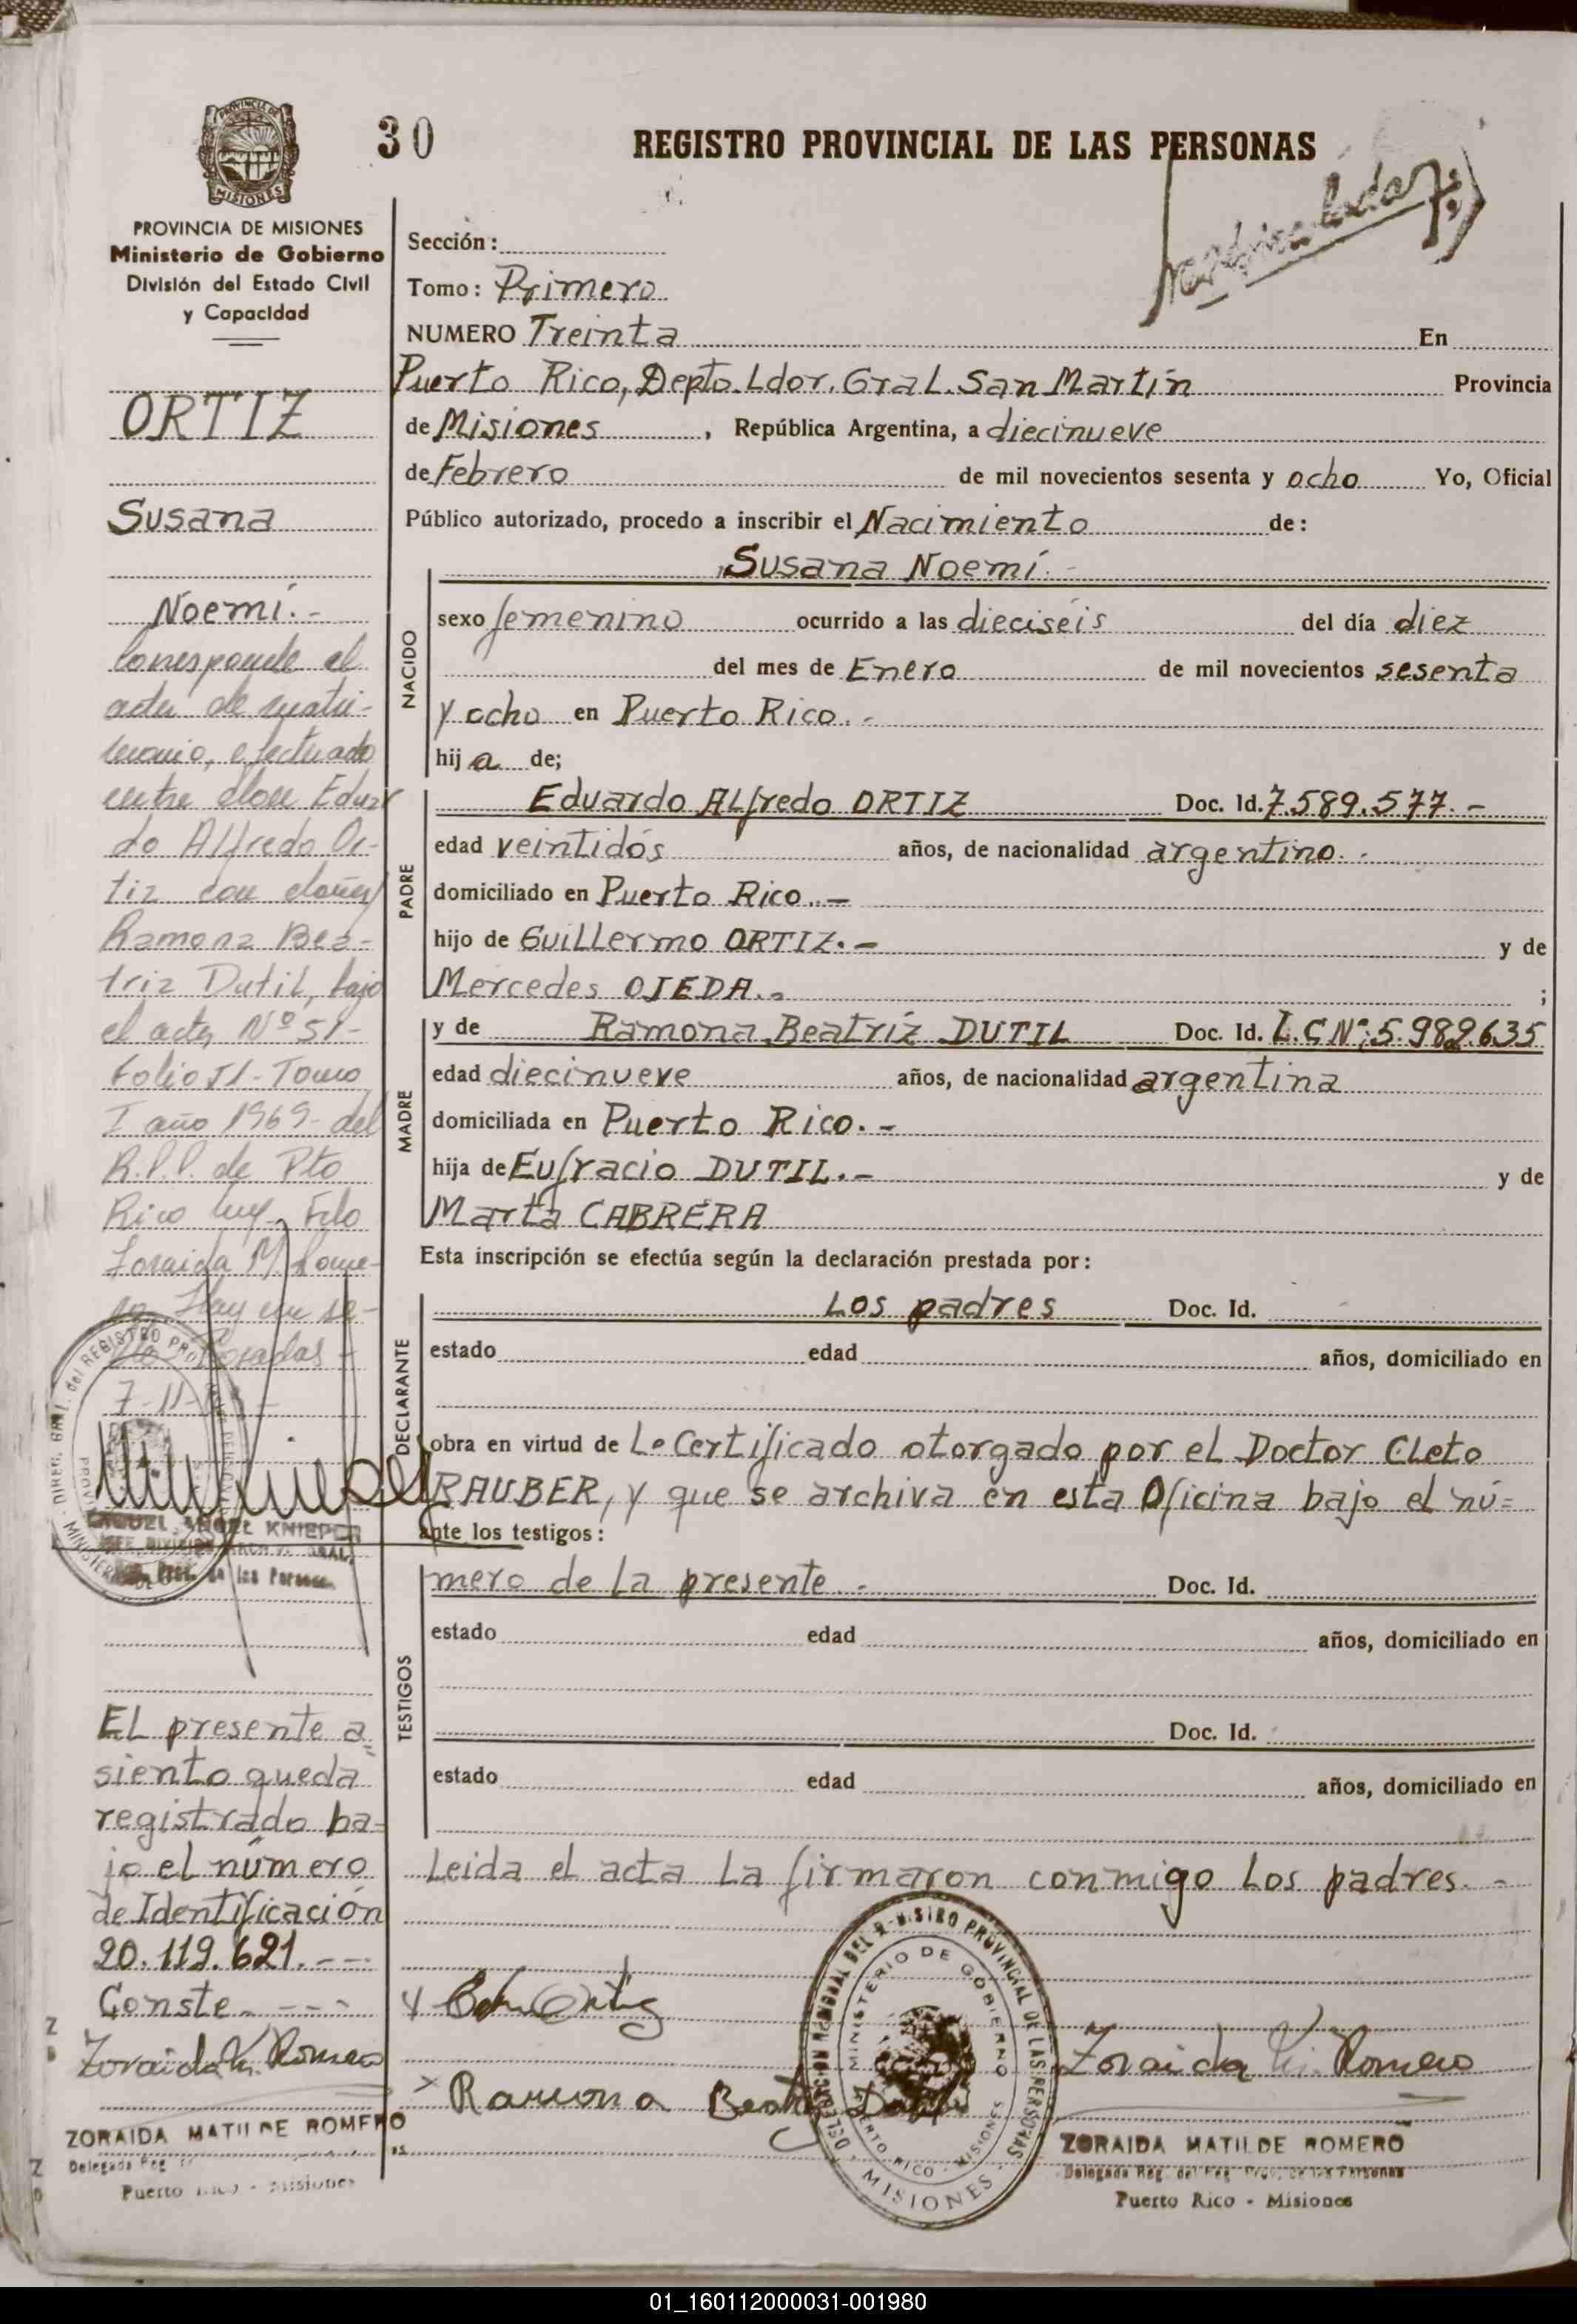 PROVINCIA DE
MISIONES
PROVINCIA DE MISIONES
Ministerio de Gobierno
División del Estado Civil
y Capacidad
ORTIZ
Susana
Noemí.-
Corresponde al
acta de matri-
monio, efectuado
entre don Eduar
do Alfredo Or-
tiz con doña
Ramona Bea-
triz Dutil, bajo
el acta Nº 51-
Folio 51- Tomo
I año 1969- del
R.P.P. de Pto
Rico Fdo
Zoraida M Rome-
ro. Hay un se-
Posadas
7-11-
MIGUEL ANGEL KNIEPER
El presente a
siento queda
registrado ba-
jo el número
de Identificación
20.119.621.---
Conste.---
Zoraida M. Romero
ZORAIDA MATILDE ROMERO
Delegada Reg
Puerto Rico - Misiones
30
REGISTRO PROVINCIAL DE LAS PERSONAS
Sección:
Tomo: Primero
NUMERO Treinta En
Puerto Rico, Depto. Ldor. Gral. San Martín Provincia
de Misiones, República Argentina, a diecinueve
de Febrero de mil novecientos sesenta y ocho Yo, Oficial
Público autorizado, procedo a inscribir el Nacimiento de:
Susana Noemí.-
NACIDO
sexo femenino ocurrido a las dieciséis del día diez
del mes de Enero de mil novecientos sesenta
y ocho en Puerto Rico.-
hija de;
PADRE
Eduardo Alfredo ORTIZ Doc. Id. 7.589.577.-
edad veintidós años, de nacionalidad argentino.-
domiciliado en Puerto Rico.-
hijo de Guillermo ORTIZ.- y de
Mercedes OJEDA.- ;
MADRE
y de Ramona Beatríz DUTIL Doc. Id. L.C Nº; 5.982.635
edad diecinueve años, de nacionalidad argentina
domiciliada en Puerto Rico.-
hija de Eufracio DUTIL.- y de
Marta CABRERA
Esta inscripción se efectúa según la declaración prestada por:
DECLARANTE
Los padres Doc. Id.
estado edad años, domiciliado en
obra en virtud de Le Certificado otorgado por el Doctor Cleto
RAUBER, y que se archiva en esta Oficina bajo el nú=
ante los testigos:
TESTIGOS
mero de la presente.- Doc. Id.
estado edad años, domiciliado en
Doc. Id.
estado edad años, domiciliado en
Leida el acta la firmaron conmigo los padres.-
Ortiz
Ramona Beatriz Dutil
MINISTERIO DE GOBIERNO
PUERTO RICO - MISIONES
MISIONES
Zoraida M. Romero
ZORAIDA MATILDE ROMERO
Delegada Reg. del Reg. Prov. de las Personas
Puerto Rico - Misiones
01_160112000031-001980